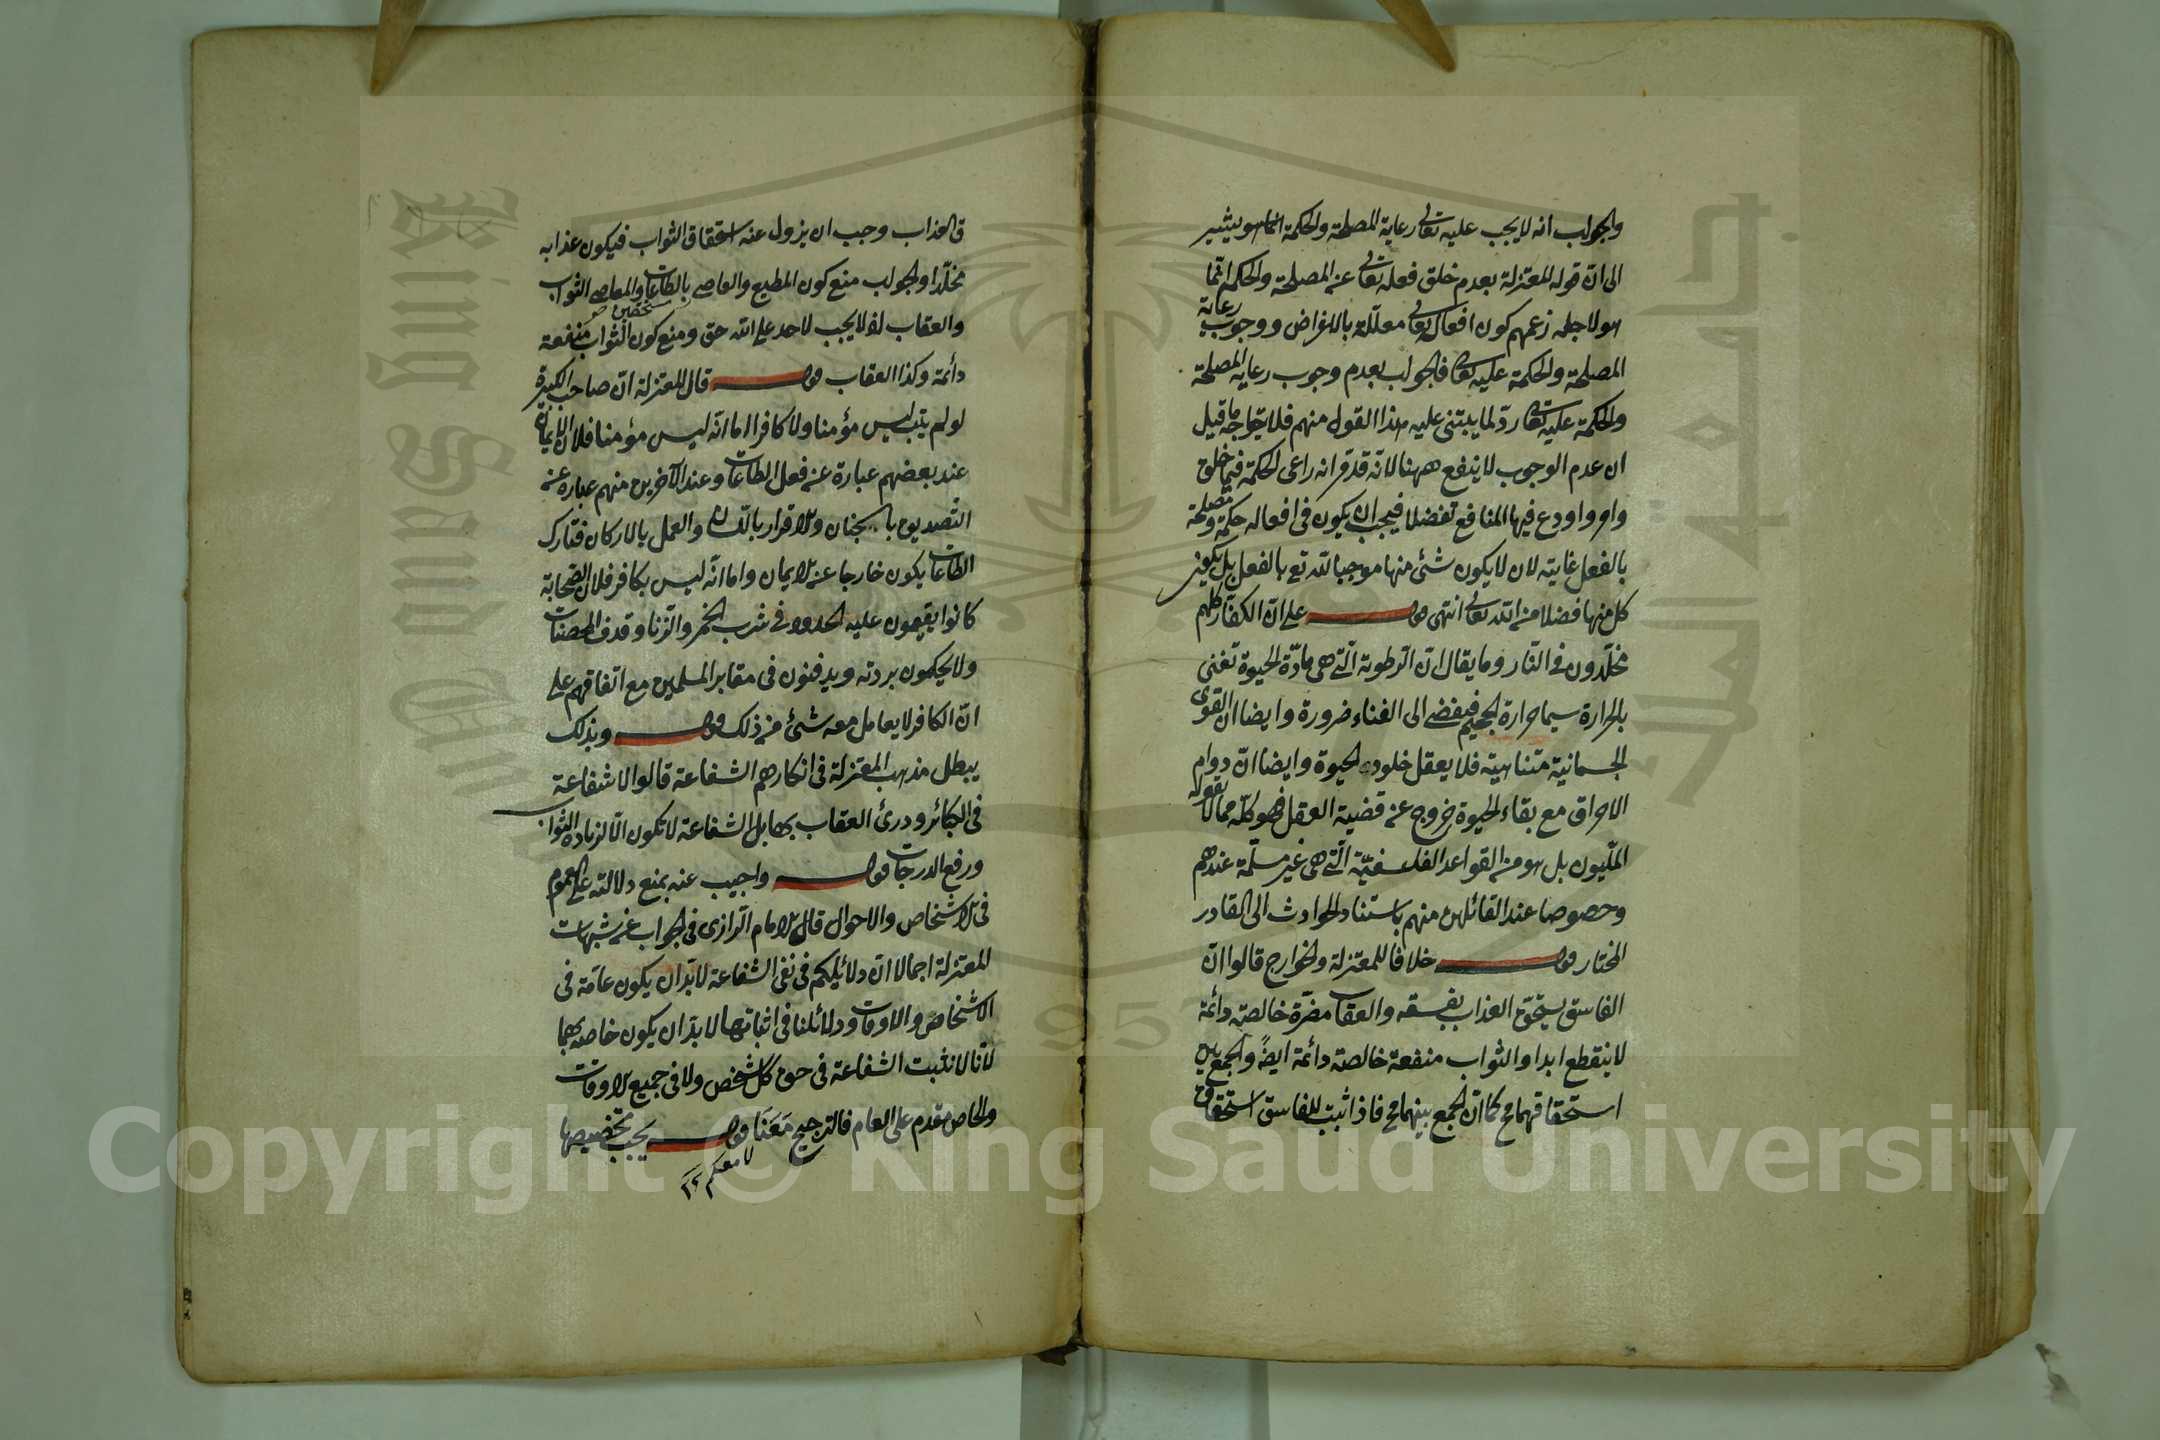 والجواب انه لا يجب عليه تعالى رعاية المصلحة والحكمة انما هو يشير
الى ان قوله المعتزلة بعدم خلق فعله تعالى عن المصلحة والحكمة انما
هو لاجل زعمهم كون افعاله تعالى معللة بالاغراض ووجوب رعاية
المصلحة والحكمة عليه تعالى فالجواب بعدم وجوب رعاية المصلحة
والحكمة عليه تعالى ردّ لما يبتنى عليه هذا القول منهم فلا يتوجه ما قيل
ان عدم الوجوب لا يندفع ههنا لانه قد قرر انه راعى الحكمة فيما خلق
وامر واودع فيها المنافع تفضلا فيجب ان يكون فى افعاله حكمة ومصلحة
بالفعل غايته لان لا يكون شئ منها موجبا لله تع بالفعل بل يكون
كل منها فضلا من الله تعالى انتهى قوله على ان الكفار كلهم
مخلّدون فى النار وما يقال ان الرطوبة الّتى هى مادّة الحيوة تفنى
بالحرارة سيما حرارة الجحيم فيفضى الى الفناء ضرورة وايضا ان القوى
الجسمانية متناهية فلا يعقل خلود الحيوة وايضا ان دوام
الاحراق مع بقاء الحيوة خروج عن قضية العقل فهو كلّه مما لا يقوله
الملّيون بل هو من القواعد الفلسفيّة الّتى هى غير مسلّمة عندهم
وخصوصا عند القائلين منهم باستناد الحوادث الى القادر
المختار قوله خلافا للمعتزلة والخوارج قالوا ان
الفاسق يستحق العذاب بفسقه والعقاب مضرّة خالصة دائمة
لا ينقطع ابدا والثواب منفعة خالصة دائمة ايضً والجمع بين
استحقاقهما مح كما ان الجمع بينهما مح فاذا ثبت للفاسق استحقاق
ق العذاب وجب ان يزول عنه استحقاق الثواب فيكون عذابه
مخلّدا والجواب منع كون المطيع والعاصى بالطاعات والمعاصى الثواب
مستحقين
والعقاب لانه لا يجب لاحد على الله حق ومنع كون الثواب منفعة
دائمة وكذا العقاب قوله قال المعتزلة ان صاحب الكبيرة
لو لم يتب ليس مؤمنا ولا كافرا اما انّه ليس مؤمنا فلان الايمان
عند بعضهم عبارة عن فعل الطاعات وعند الآخرين منهم عبارة عن
التصديق بالجنان والاقرار باللسان والعمل بالاركان فتارك
الطاعات يكون خارجا عن الايمان واما انّه ليس بكافر فلان الصحابة
كانوا يقيمون عليه الحدود فى شرب الخمر والزنا وقذف المحصنات
ولا يحكمون بردته ويدفنون فى مقابر المسلمين مع اتفاقهم على
انّ الكافر لا يعامل معه شئ من ذلك قوله وبذلك
يبطل مذهب المعتزلة فى انكارهم الشفاعة قالوا لا شفاعة
فى الكبائر ودرئ العقاب بها بل الشفاعة لا تكون الّا لزيادة الثواب
ورفع الدرجات قوله واجيب عنه بمنع دلالته على العموم
فى الاشخاص والاحوال قال الامام الرازى فى الجواب عن شبهات
المعتزلة اجمالا ان دلائلكم فى نفى الشفاعة لابدّ ان يكون عامّة فى
الاشخاص والاوقات ودلائلنا فى اثباتها لابدّ ان يكون خاصة بهما
لانّا لا نثبت الشفاعة فى حق كل شخص ولا فى جميع الاوقات
والخاص مقدم على العام فالترجيح مَعَنَا قوله يجب تخصيصها
لا معكم